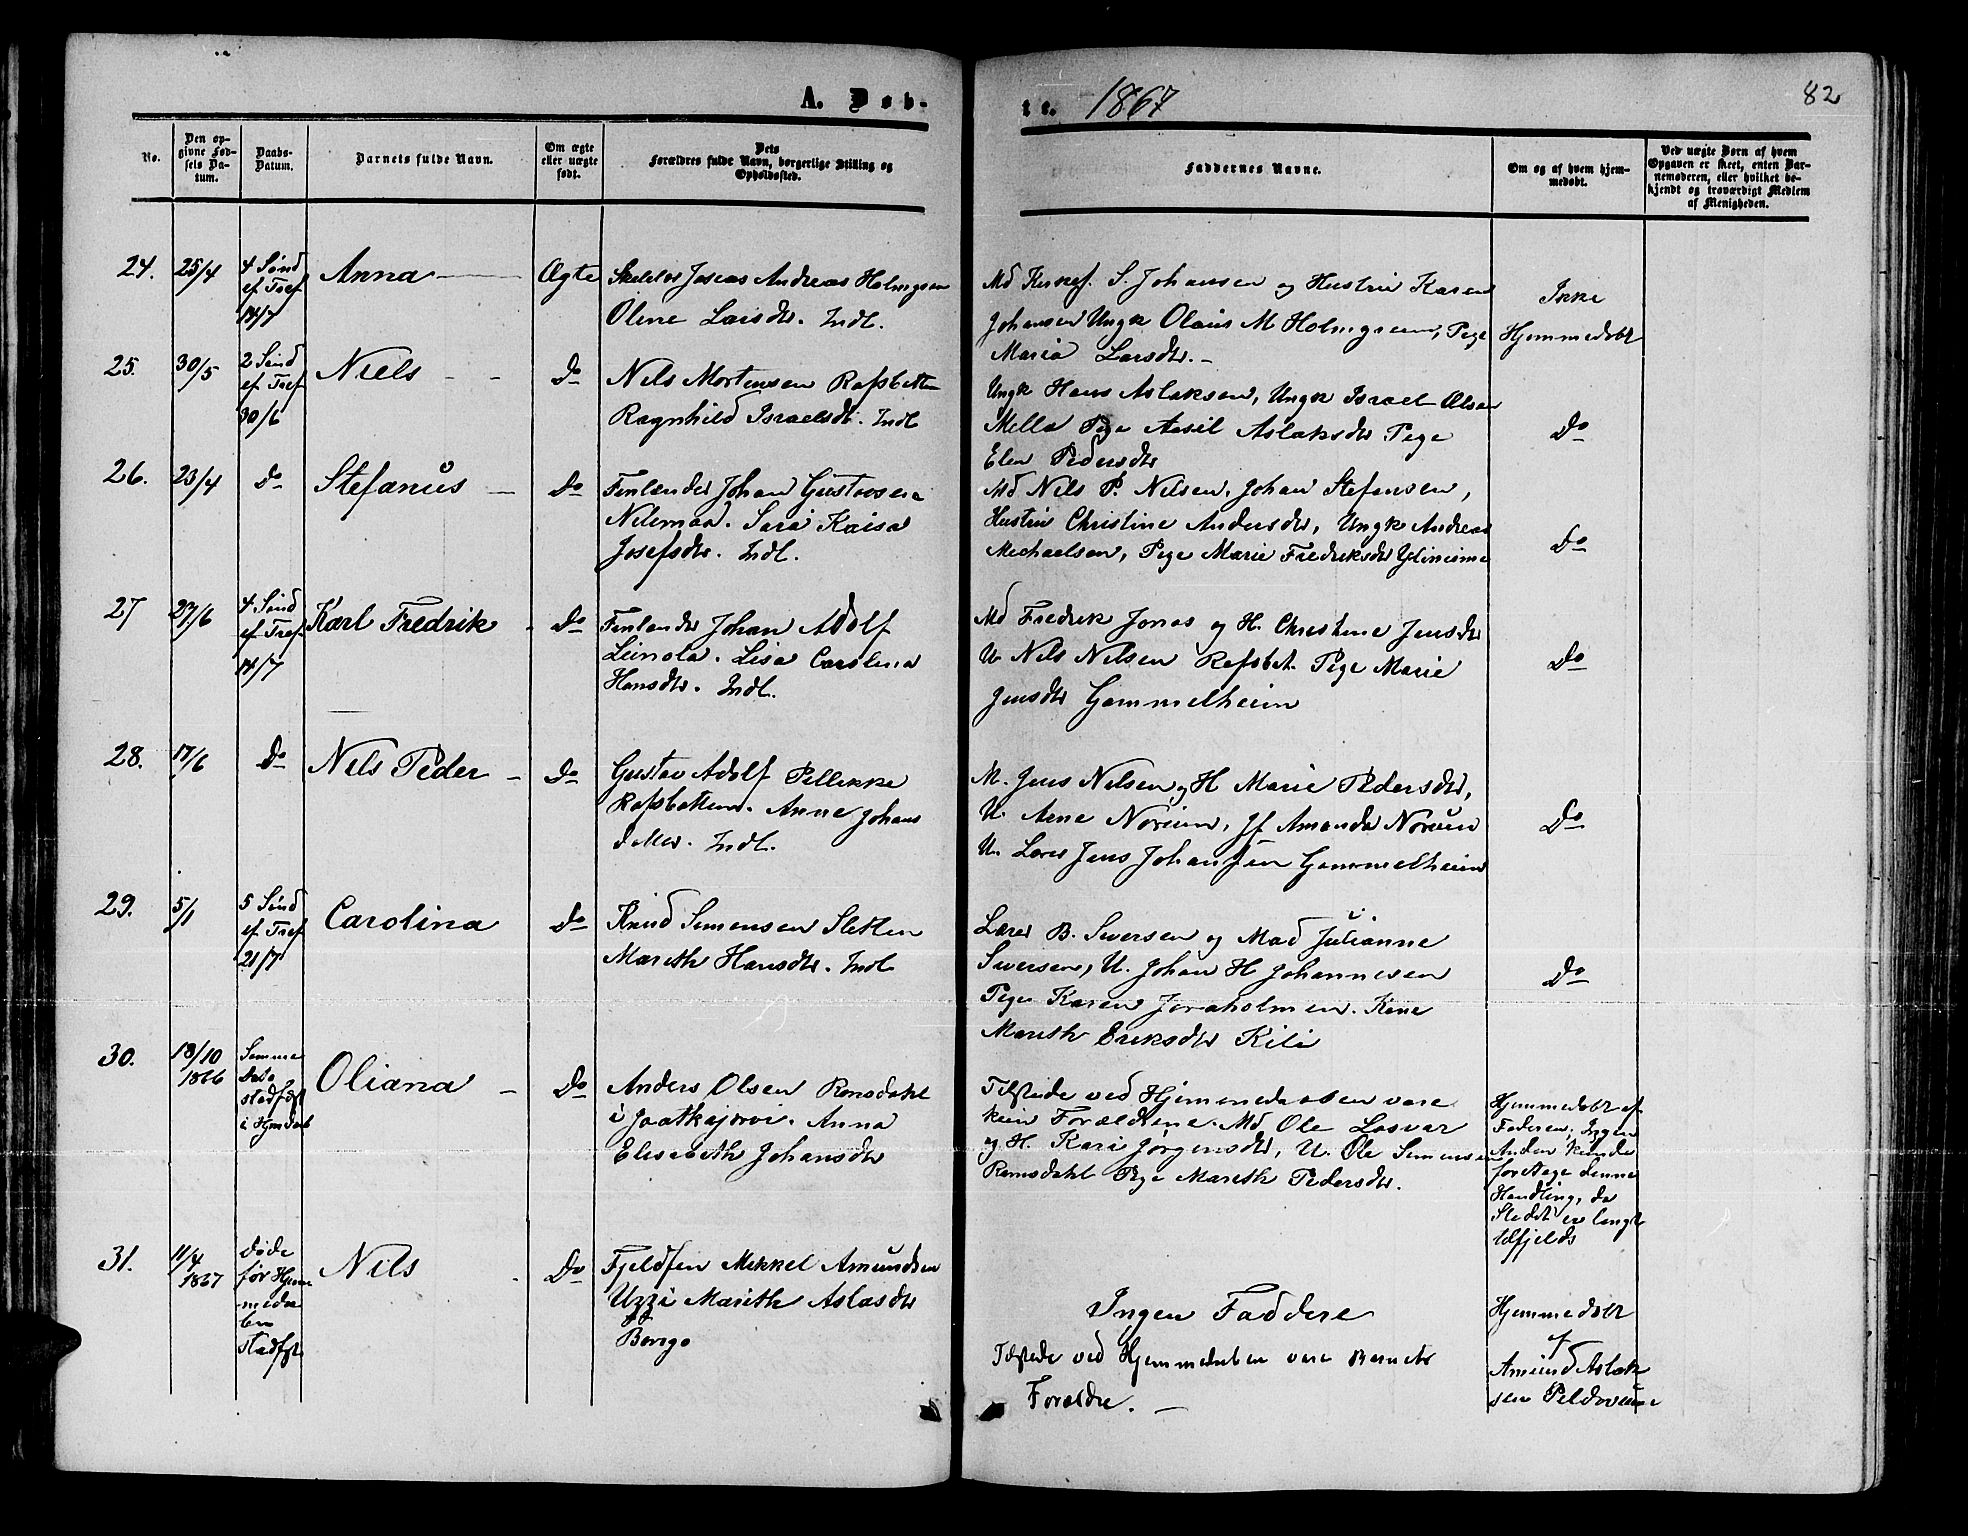 A. Døb-
te. 1867
82
No.
Den op-
givne Fød-
sels Da-
tum.
Daabs-
Datum.
Barnets fulde Navn.
Om ægte
eller uægte
født.
Dets
Forældres fulde Navn, borgerlige Stilling og
Opholdssted.
Faddernes Navne.
Om og af hvem hjem-
medøbt.
Ved uægte Børn af hvem
Opgaven er skeet, enten Bar-
nemoderen, eller hvilket be-
kjendt og troværdigt Medlem
af Menigheden.
24.
25/4
4 Sønd
ef Tref
14/7
Anna
Ægte
Josias Andreas Holmgren
Oline Larsdtr. Indl.
Md Kirkes. S. Johansen og Hustru Karen
Johansen Ungk Olaus M Holmgreen, Pige
Maria Larsdtr. -
Ikke
Hjemmedøbt
25.
30/5
2 Sønd
ef Tref
30/6
Niels
Do
Nils Mortensen Rafsbotten
Ragnhild Israelsdt. Indl
Ungk Hans Aslaksen, Ungk Israel Olsen
Mella Pige Aasil Aslaksdtr Pige
Elen Pedersdtr
Do
26.
23/4
Do
Stefanus
Do
Finlænder Johan Gustavsen
Nilimaa. Sara Kaisa
Josefsdtr. Indl.
Md Nils P. Nilsen, Johan Stefansen,
Hustru Christine Andersdtr, Ungk Andreas
Michaelsen, Pige Marie Fredriksdtr
Do
27
27/6
4 Sønd
ef Tref
14/7
Karl Fredrik
Do
Finlænder Johan Adolf
Leinola. Lisa Carolina
Hansdtr. Indl.
Md Fredrik Jonas og H. Christine Jensdtr
U. Nils Nilsen Rafsbot. Pige Marie
Jensdtr Gammelheim
Do
28.
17/6
Do
Nils Peder
Do
Gustav Adolf Pellikke
Rafsbotten. Anne Johans
datter. Indl.
M. Jens Nilsen og H Marie Pedersdtr,
U. Arne Norum, Jf Amanda Norum
U. Lars Jens Johansen Gammelheim
Do
29.
5/1
5 Sønd
ef Tref
21/7
Carolina
Do
Knud Simensen Sletten
Marith Hansdtr. Indl
Lærer B. Siversen og Mad Julianne
Siversen, U. Johan H Johannesen
Pige Karen Joraholmen. Kone
Marith Eriksdtr Kili
Do
30.
18/10
1866
Samme
Dato
stadfæst
i Hjmdaab
Oliana
Do
Anders Olsen Romsdahl
i Jaatkajarvi. Anna
Elisabeth Johansdtr
Tilstede ved Hjemmedaaben vare
kun Forældrene. Md Ole Lasvar
og H. Kari Jørgensdtr, U. Ole Simensen
Romsdahl Pige Marith Pedersdtr.
Hjemmedøbt af
Faderen; Ingen
Anden kunde
foretage denne
Handling, da
Stedet er langt
tilfjelds
31.
11/4
1867
Døde
før Hjem
meda
ben
stadfste
Nils
Do
Fjeldfin Mikkel Amundsen
Uzzi Marith Aslasdtr
Bongo
Ingen Faddere
Tilstede ved Hjemmedaaben vare Barnets
Forældre. -
Hjemmedøbt
af
Amund Aslak
sen